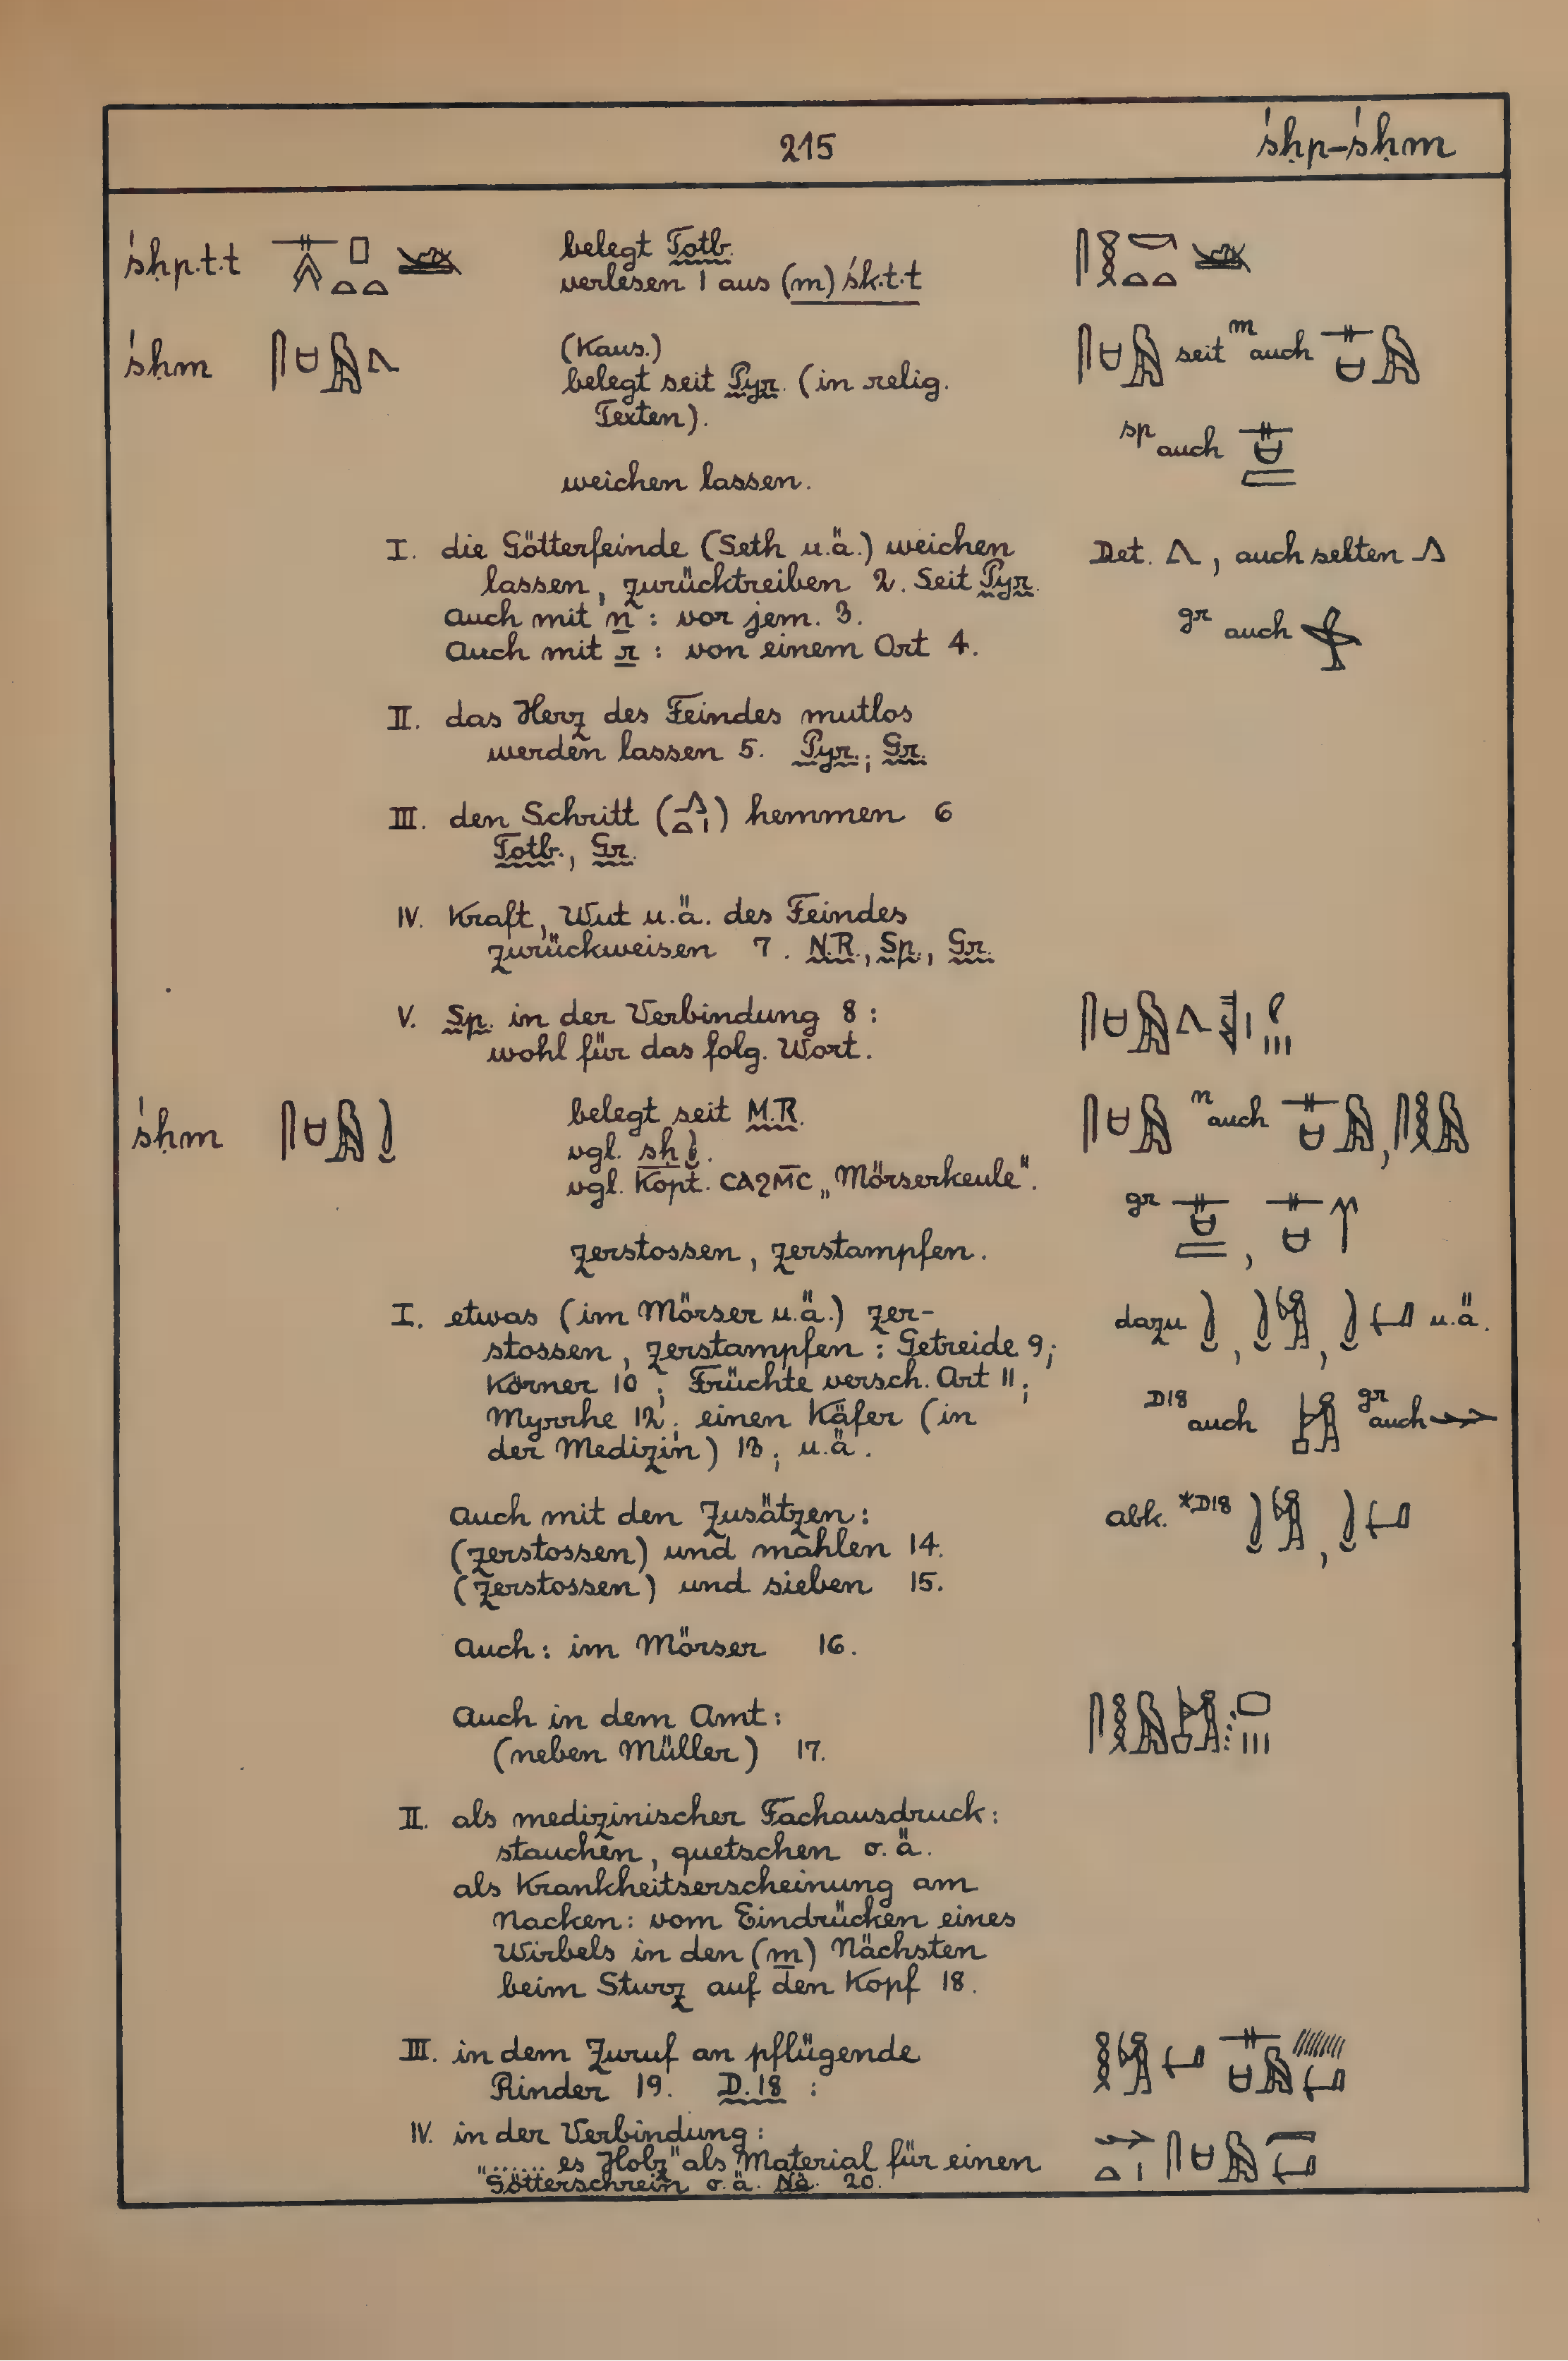 215 śḥp-śḥm
śḥp.t.t belegt Totb.
verlesen 1 aus (m)śk.t.t
śḥm (Kaus.)
seit m auch
belegt seit Pyr. (in relig.
Texten).
sp auch
weichen lassen.
I. die Götterfeinde (Seth u.ä.) weichen
Det. , auch selten
lassen, zurücktreiben 2. Seit Pyr.
Auch mit n : vor jem. 3.
gr auch
Auch mit r : von einem Ort 4.
II. das Herz des Feindes mutlos
werden lassen 5. Pyr.; Gr.
III. den Schritt ( ) hemmen 6
Totb., Gr.
IV. Kraft, Wut u.ä. des Feindes
zurückweisen 7. N.R., Sp., Gr.
V. Sp. in der Verbindung 8 :
wohl für das folg. Wort.
śḥm belegt seit M.R.
n auch
vgl. sḥ .
vgl. Kopt. ⲤⲀϨⲘ̅Ⲥ „Mörserkeule".
gr
zerstossen, zerstampfen.
I. etwas (im Mörser u.ä.) zer-
dazu , , u.ä.
stossen, zerstampfen : Getreide 9;
Körner 10 ; Früchte versch. Art 11;
D18 auch gr auch
Myrrhe 12; einen Käfer (in
der Medizin) 13; u.ä.
Auch mit den Zusätzen :
abk. *D18
(zerstossen) und mahlen 14.
(zerstossen) und sieben 15.
Auch : im Mörser 16.
Auch in dem Amt :
(neben Müller) 17.
II. als medizinischer Fachausdruck :
stauchen, quetschen o.ä.
als Krankheitserscheinung am
Nacken : vom Eindrücken eines
Wirbels in den (m) Nächsten
beim Sturz auf den Kopf 18.
III. in dem Zuruf an pflügende
Rinder 19. D.18 :
IV. in der Verbindung :
"...... es Holz" als Material für einen
Götterschrein o.ä. Nä. 20.